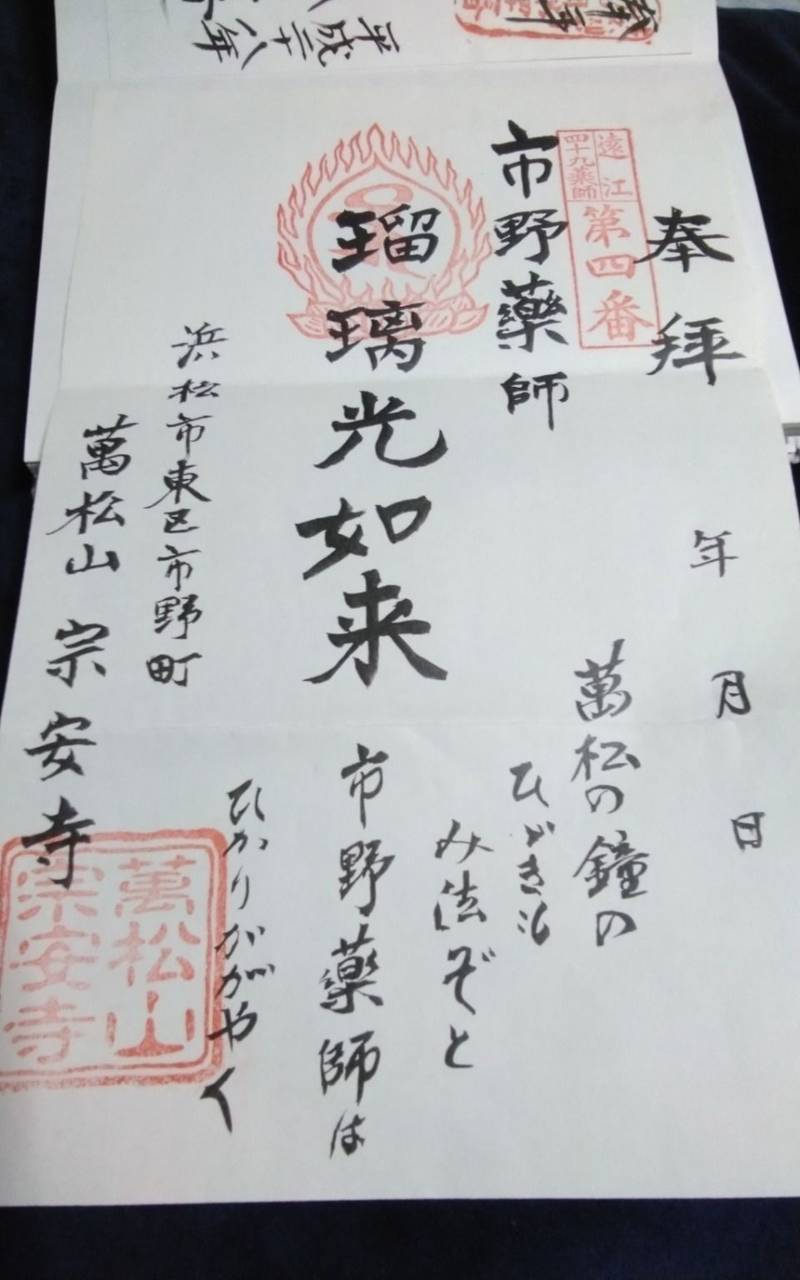 平成二十八年
奉拝
年 月 日
遠江
四十九薬師
第四番
市野藥師
瑠璃光如来
萬松の鐘の
ひゞきも
み法ぞと
市野藥師は
ひかりががやく
浜松市東区市野町
萬松山 宗安寺
萬松山
宗安寺